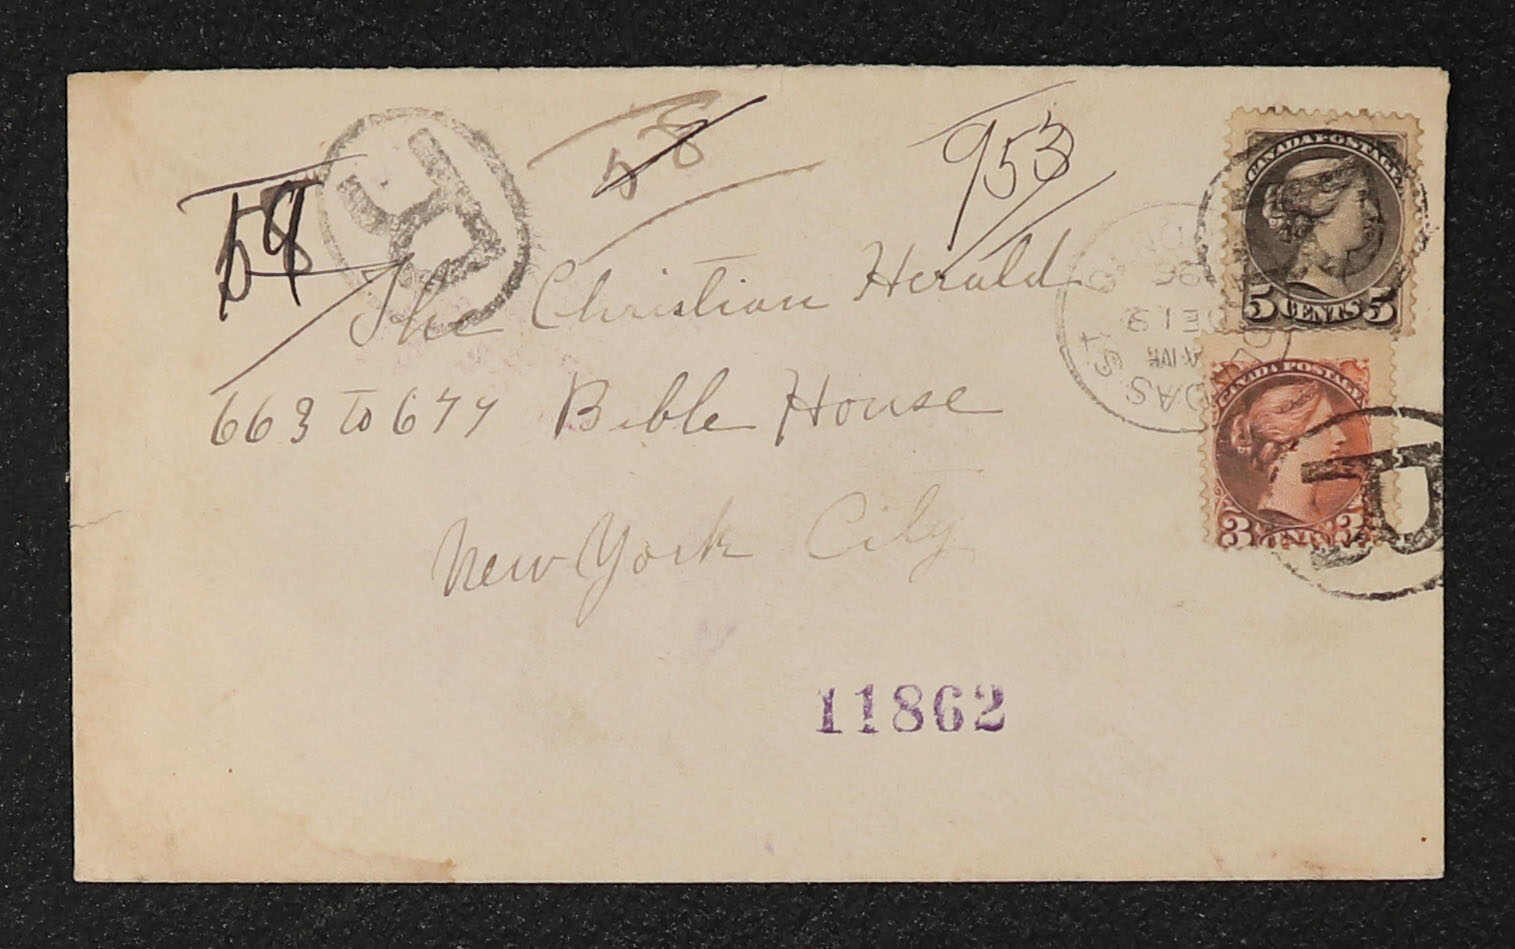 58
R
58
953
The Christian Herald
663 to 677 Bible House
New York City
11862
CANADA POSTAGE
5 CENTS 5
CANADA POSTAGE
3 CENTS 3
DE 13
R